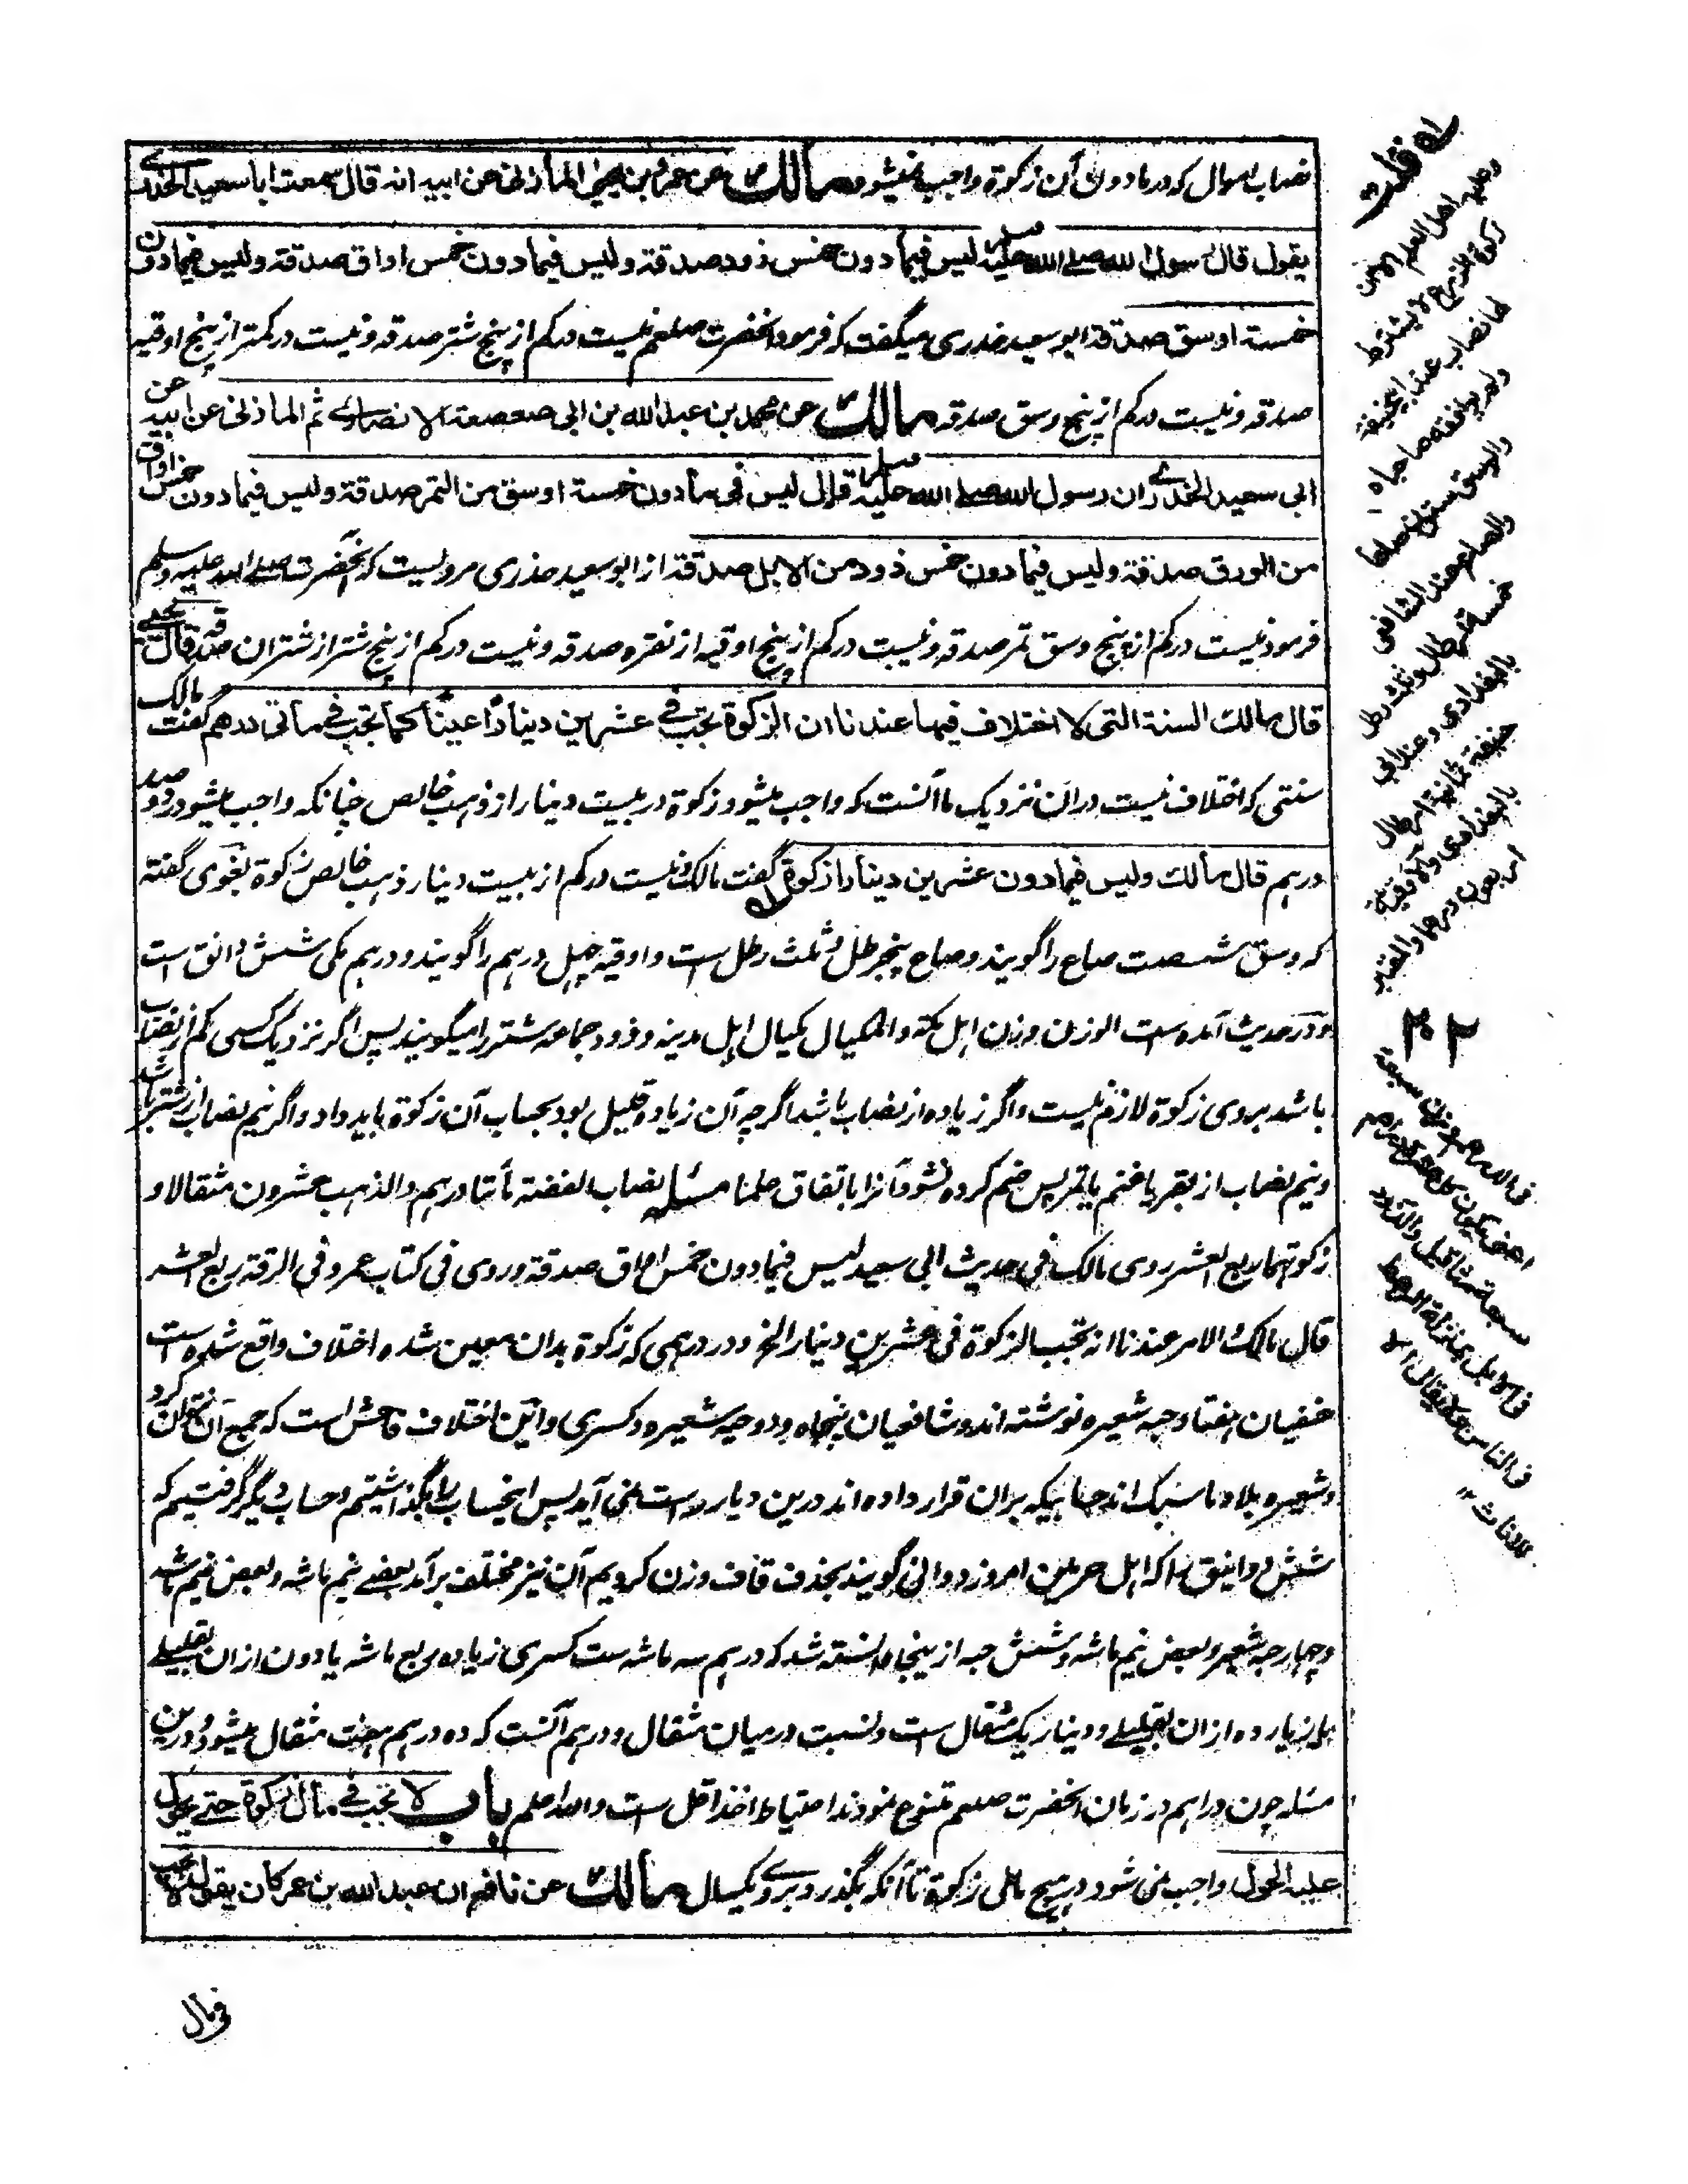 نصاب اموال که در مادون آن زکوة واجب نمیشود مالك عن عمرو بن يحيى المازنی عن ابیه انه قال سمعت ابا سعيد الخدری
يقول قال رسول الله صلے الله عليه وسلم ليس فيما دون خمس ذود صدقة وليس فيما دون خمس اواق صدقة وليس فيما دون
خمسة اوسق صدقة ابو سعید خدری میگفت که فرمود آنحضرت صلعم نیست در کم از پنج شتر صدقه و نیست در کمتر از پنج اوقیه
صدقه و نیست در کم از پنج وسق صدقه مالك عن محمد بن عبد الله بن ابی صعصعة الانصاری ثم المازنی عن ابیه عن
ابی سعید الخدری ان رسول الله صلے الله عليه وسلم قال ليس فی ما دون خمسة اوسق من التمر صدقة وليس فيما دون خمس اواق
من الورق صدقة وليس فيما دون خمس ذود من الابل صدقة از ابو سعید خدری مرویست که آنحضرت صلے الله علیه وسلم
فرمود نیست در کم از پنج وسق تمر صدقه و نیست در کم از پنج اوقیه از نقره صدقه و نیست در کم از پنج شتر از شتران صدقه قال یحیی
قال مالك السنة التی لا اختلاف فيها عندنا ان الزكوة تجب فی عشرين دينارا عينا كما تجب فی مائتی درهم گفت مالک
سنتی که اختلاف نیست دران نزدیک ما آنست که واجب میشود زکوة در بیست دینار از ذهب خالص چنانکه واجب میشود در دو صد
درہم قال مالك وليس فيما دون عشرين دينارا زكوة گفت مالک و نیست در کم از بیست دینار ذهب خالص زکوة بغوی گفته
که وسق شصت صاع را گویند و صاع پنج رطل و ثلث رطل است و اوقیه چہل درہم را گویند و درہم مکی شش دانق است
و در حدیث آمده است الوزن وزن اہل مکة والمکیال مکیال اہل مدینه و ذود جماعه شتر را میگویند پس اگر نزدیک کسی کم از نصاب
باشد بروی زکوة لازم نیست و اگر زیاده از نصاب باشد اگرچه آن زیاده قلیل بود بحساب آن زکوة باید داد و اگر نیم نصاب از شتر باشد
و نیم نصاب از بقر یا غنم یا تمر پس ضم کرده نشود آنرا باتفاق علما مسئله نصاب الفضة مأتا درہم والذہب عشرون مثقالا و
زکوتهما ربع العشر روی مالک فی حدیث ابی سعید لیس فیما دون خمس اواق صدقة وروی فی کتاب عمر وفی الرقة ربع العشر
قال مالک الامر عندنا انه تجب الزکوة فی عشرین دینارا الخ و در درہمی که زکوة بدان معین شده اختلاف واقع شده است
حنفیان ہفتاد حبه شعیره نوشته اند و شافعیان پنجاه و دو حبه شعیره و کسری و این اختلاف فاحش است که جمع آن نتوان کرد
و شعیره بلاد ما سبک اند حسابیکه بران قرار داده اند درین دیار راست نمی آید پس این حساب را بگذاشتیم و حساب دیگر گرفتیم که
شش دوانیق را که اہل حرمین امروز دوانی گویند بحذف قاف وزن کردیم آن نیز مختلف برآمد بعضے نیم ماشه و بعض نیم ماشه
و چہار حبه شعیر و بعض نیم ماشه و شش حبه ازینجا دانسته شد که درہم سه ماشه است کسری زیاده ربع ماشه یا دون ازان بقلیلے
یا زیاده ازان بقلیلے و دینار یک مثقال است و نسبت درمیان مثقال و درہم آنست که ده درہم ہفت مثقال میشود و درین
مسئله چون دراہم در زمان آنحضرت صلعم متنوع بودند احتیاط اخذ اقل است والله اعلم باب لا تجب فی مال زكوة حتے يحول
عليه الحول واجب نمی شود در ہیچ مالی زکوة تا آنکه بگذرد بروے یکسال مالك عن نافع ان عبد الله بن عمر كان يقول لا تجب
فی مال
له قلت
وعليه اهل العلم الا ان
زكوة الزرع لا يشترط
لها نصاب عند ابی حنيفة
ولم يوافقه صاحباه
والوسق ستون صاعا
والصاع عند الشافعی
خمسة رطال وثلث رطل
بالبغدادی وعند ابی
حنيفة ثمانية ارطال
بالبغدادی والاوقية
اربعون درهما والمعتبر
۳۲
فی الدراهم وزن سبعة
اعنی يكون كل عشرة دراهم
سبعة مثاقيل والذود
فی الابل بمنزلة الرهط
فی الناس ولا يقال الا
للاناث ١٢